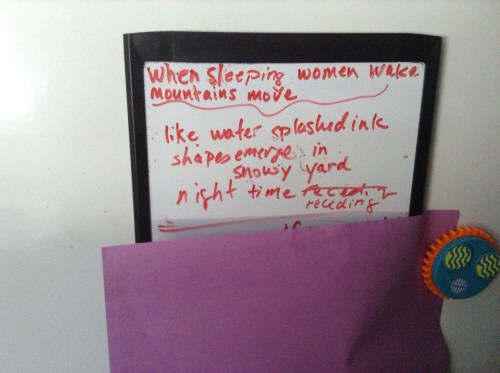 When sleeping women wake
mountains move
like water splashed ink
shapes emerge in
snowy yard
night time
receding